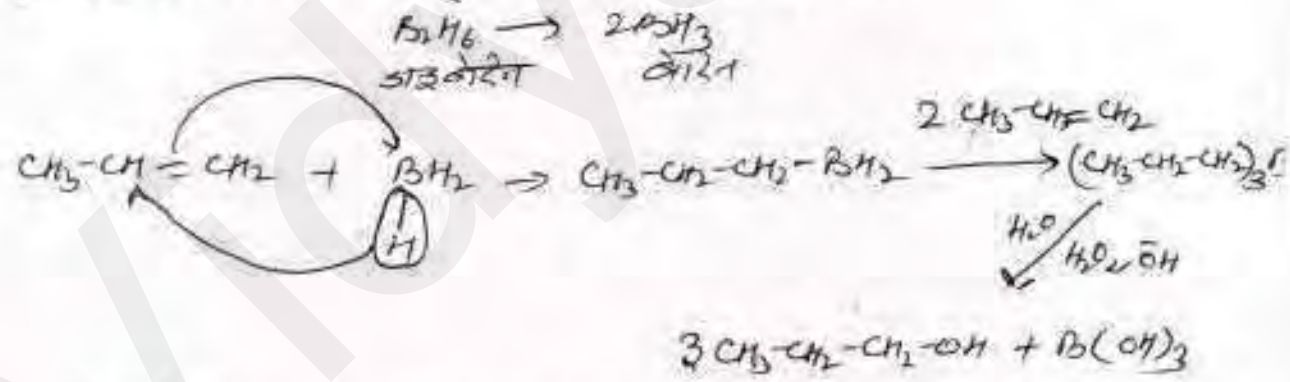 B2H6 → 2BH3
डाइबोरेन बोरेन
2 CH3-CH=CH2
CH3-CH=CH2 + BH2 → CH3-CH2-CH2-BH2 → (CH3-CH2-CH2)3B
H
H2O
H2O2, ŌH
3 CH3-CH2-CH2-OH + B(OH)3